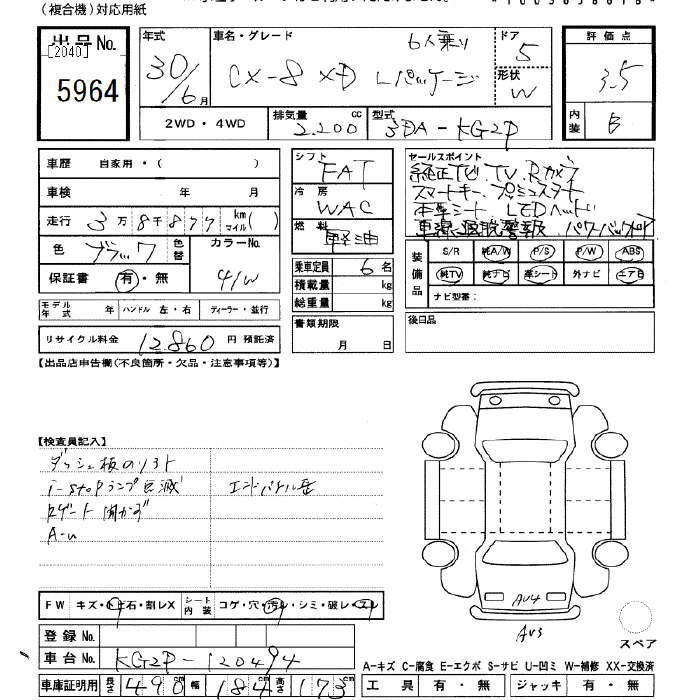 (複合機)対応用紙
出品No.
[2040]
5964
年式
30/6月
車名・グレード
6人乗り
CX-8 XD Lパッケージ
ドア
5
形状
W
評価点
3.5
内装
B
2WD・4WD
排気量
2.200 cc
型式
3DA-KG2P
車歴 自家用・( )
車検 年 月
走行 3万8千877 km マイル( )
色 ブラック 色替
カラーNo.
41W
保証書 有・無
モデル年式 年 ハンドル 左・右 ディーラー・並行
リサイクル料金 12.860 円 預託済
シフト
FAT
冷房
WAC
燃料
軽油
乗車定員 6 名
積載量 kg
総重量 kg
書類期限
月 日
セールスポイント
純正ナビ.TV.Rカメラ
スマートキー.プッシュスタート
本革シート LEDヘッド
車線逸脱警報 パワーバックドア
装備品
S/R 純A/W P/S P/W ABS
純TV 純ナビ 革シート 外ナビ エアB
ナビ型番:
後日品
【出品店申告欄(不良箇所・欠品・注意事項等)】
【検査員記入】
ダッシュ板のソフト
i-stopランプ点滅
Rゲート開かず
A-u
AV4
AV3
スペア
FW キズ・トビ石・割レX シート内装 コゲ・穴・汚レ・シミ・破レ・スレ
登録No.
車台No. KG2P-120494
車庫証明用 長さ 490 cm 幅 184 cm 高さ 173 cm
A-キズ C-腐食 E-エクボ S-サビ U-凹ミ W-補修 XX-交換済
工具 有・無 ジャッキ 有・無